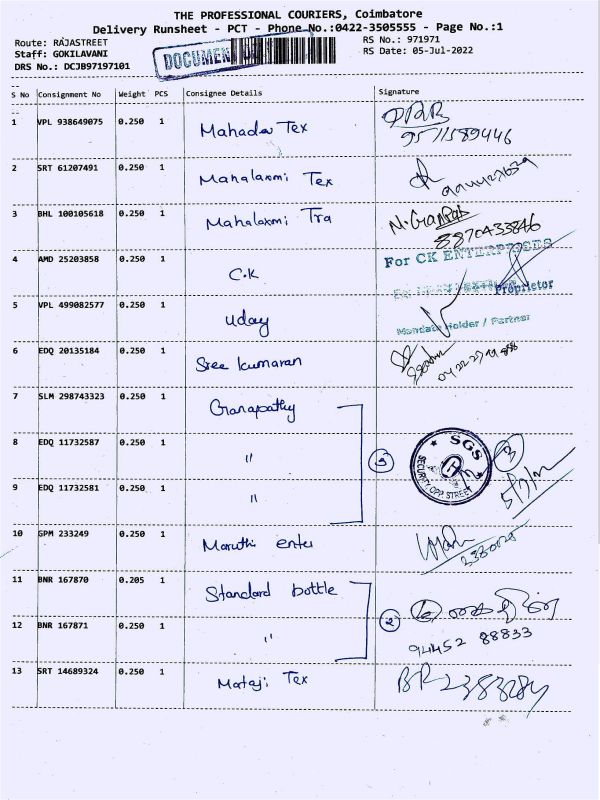 THE PROFESSIONAL COURIERS, Coimbatore
Delivery Runsheet - PCT - Phone No.:0422-3505555 - Page No.:1
Route: RAJASTREET
RS No.: 971971
Staff: GOKILAVANI
RS Date: 05-Jul-2022
DRS No.: DCJB97197101
DOCUMENT
S No Consignment No Weight PCS Consignee Details Signature
1 VPL 938649075 0.250 1 Mahadev Tex
9511589446
2 SRT 61207491 0.250 1 Mahalaxmi Tex
3 BHL 100105618 0.250 1 Mahalaxmi Tra M. Ganpat
8870433846
4 AMD 25203858 0.250 1 C.K For CK ENTERPRISES
Proprietor
5 VPL 499082577 0.250 1 Uday
Mandate Holder / Partner
6 EDQ 20135184 0.250 1 Sree kumaran
7 SLM 298743323 0.250 1 Ganapathy
8 EDQ 11732587 0.250 1 " 3 SGS 3
SECURITY OPP. STREET
9 EDQ 11732581 0.250 1 "
10 GPM 233249 0.250 1 Maruthi enter
11 BNR 167870 0.205 1 Standard bottle
12 BNR 167871 0.250 1 " 2
94452 88833
13 SRT 14689324 0.250 1 Mataji Tex BR 2383284